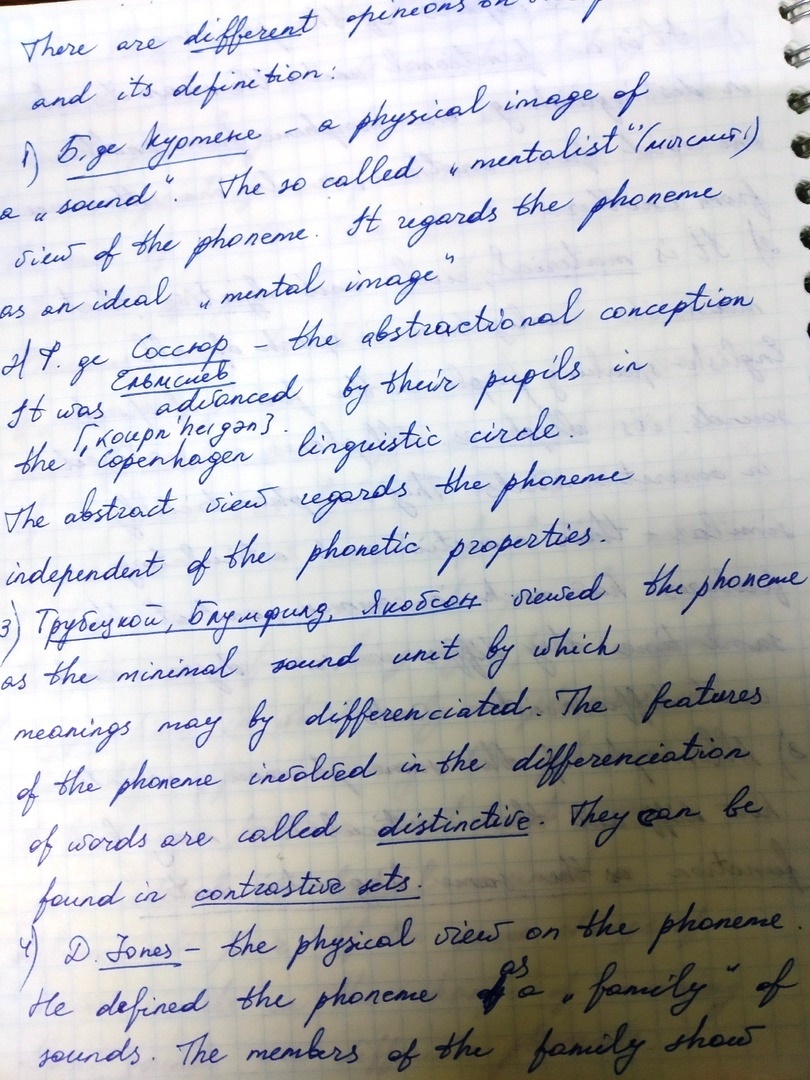 There are different opinions on
and its definition:
1) Б. де Куртене – a physical image of
a „sound“. The so called „mentalist“ (мыслит.)
view of the phoneme. It regards the phoneme
as an ideal „mental image“
2) Ф. де Соссюр – the abstractional conception
Ельмслев
It was advanced by their pupils in
[ˌкоupn'heigən].
the Copenhagen linguistic circle.
The abstract view regards the phoneme
independent of the phonetic properties.
3) Трубецкой, Блумфилд, Якобсон viewed the phoneme
as the minimal sound unit by which
meanings may by differenciated. The features
of the phoneme involved in the differenciation
of words are called distinctive. They can be
found in contrastive sets.
4) D. Jones – the physical view on the phoneme.
He defined the phoneme as a „family“ of
sounds. The members of the family show